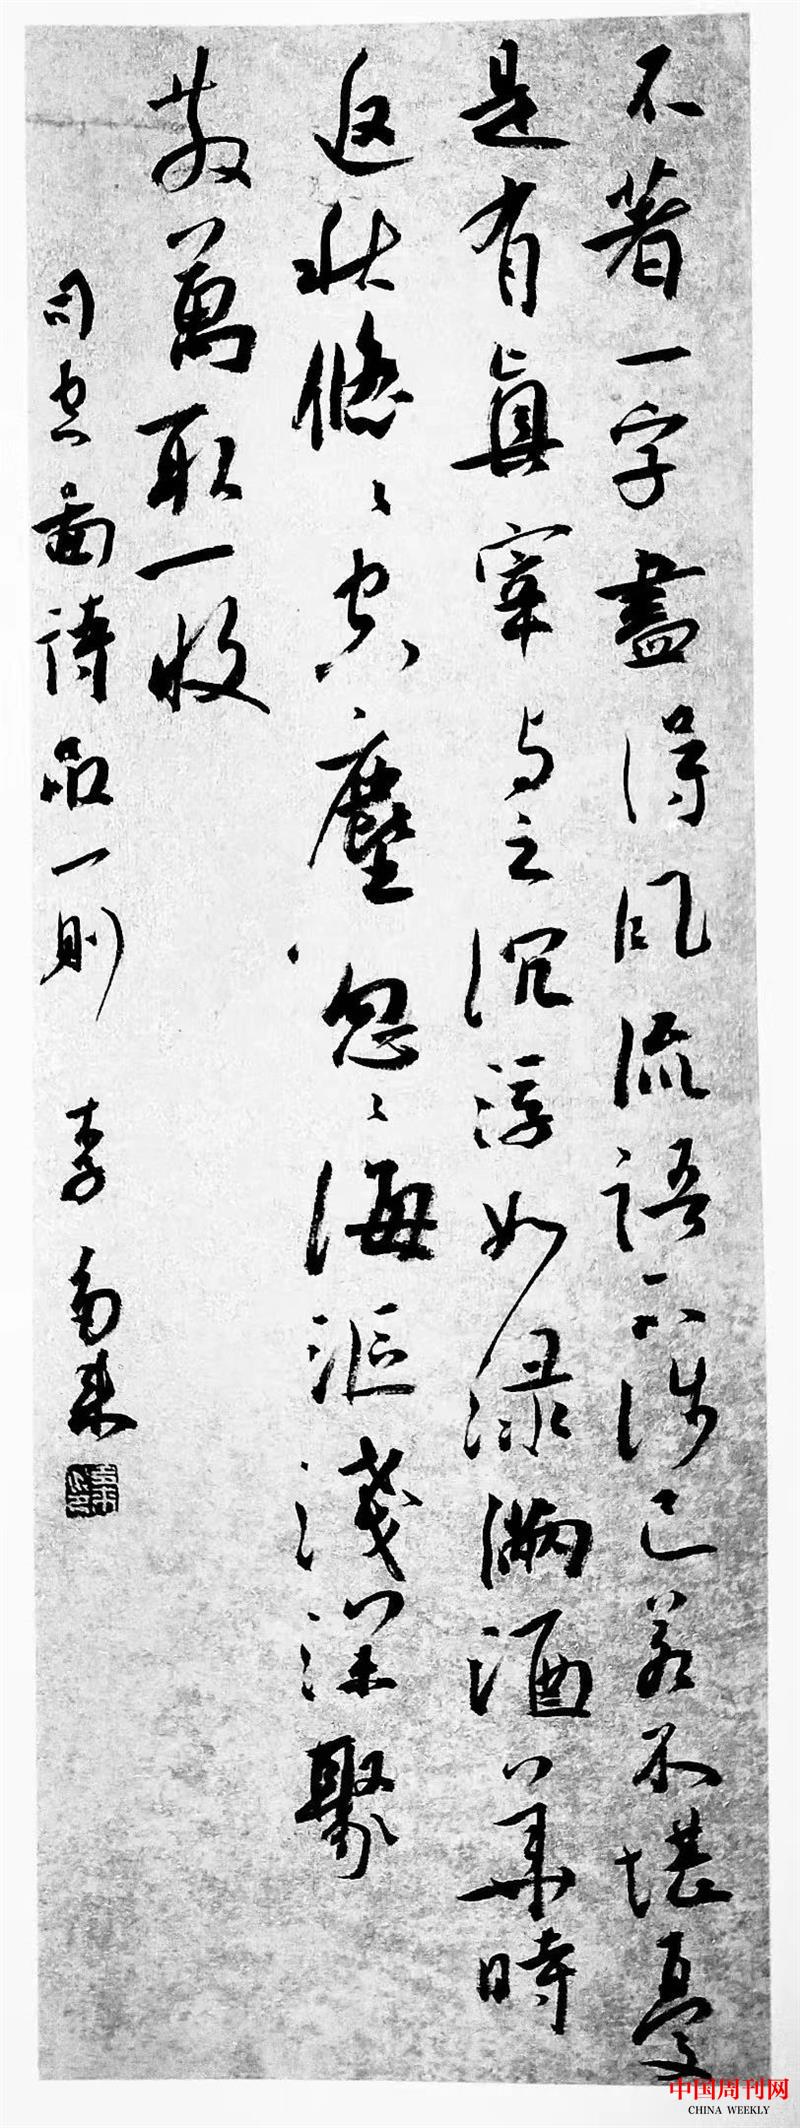 不著一字盡得風流語不涉己若不堪憂
是有真宰与之沉浮如淥滿酒華時
返秋悠〻空塵忽〻海漚淺深聚
散萬取一收
司空圖詩品一則 李
中国周刊网
CHINA WEEKLY